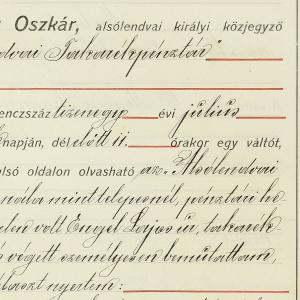 Oszkár, alsólendvai királyi közjegyző
dvai Takarékpénztár"
enczszáz tizenegy évi július
napján, dél előtt 11. órakor egy váltót,
lsó oldalon olvasható az "Alsólendvai
nála mint telepesnél, pénztári he
len volt Engel Lajos úr, takarék
végett személyesen bemutattam,
választ nyertem: